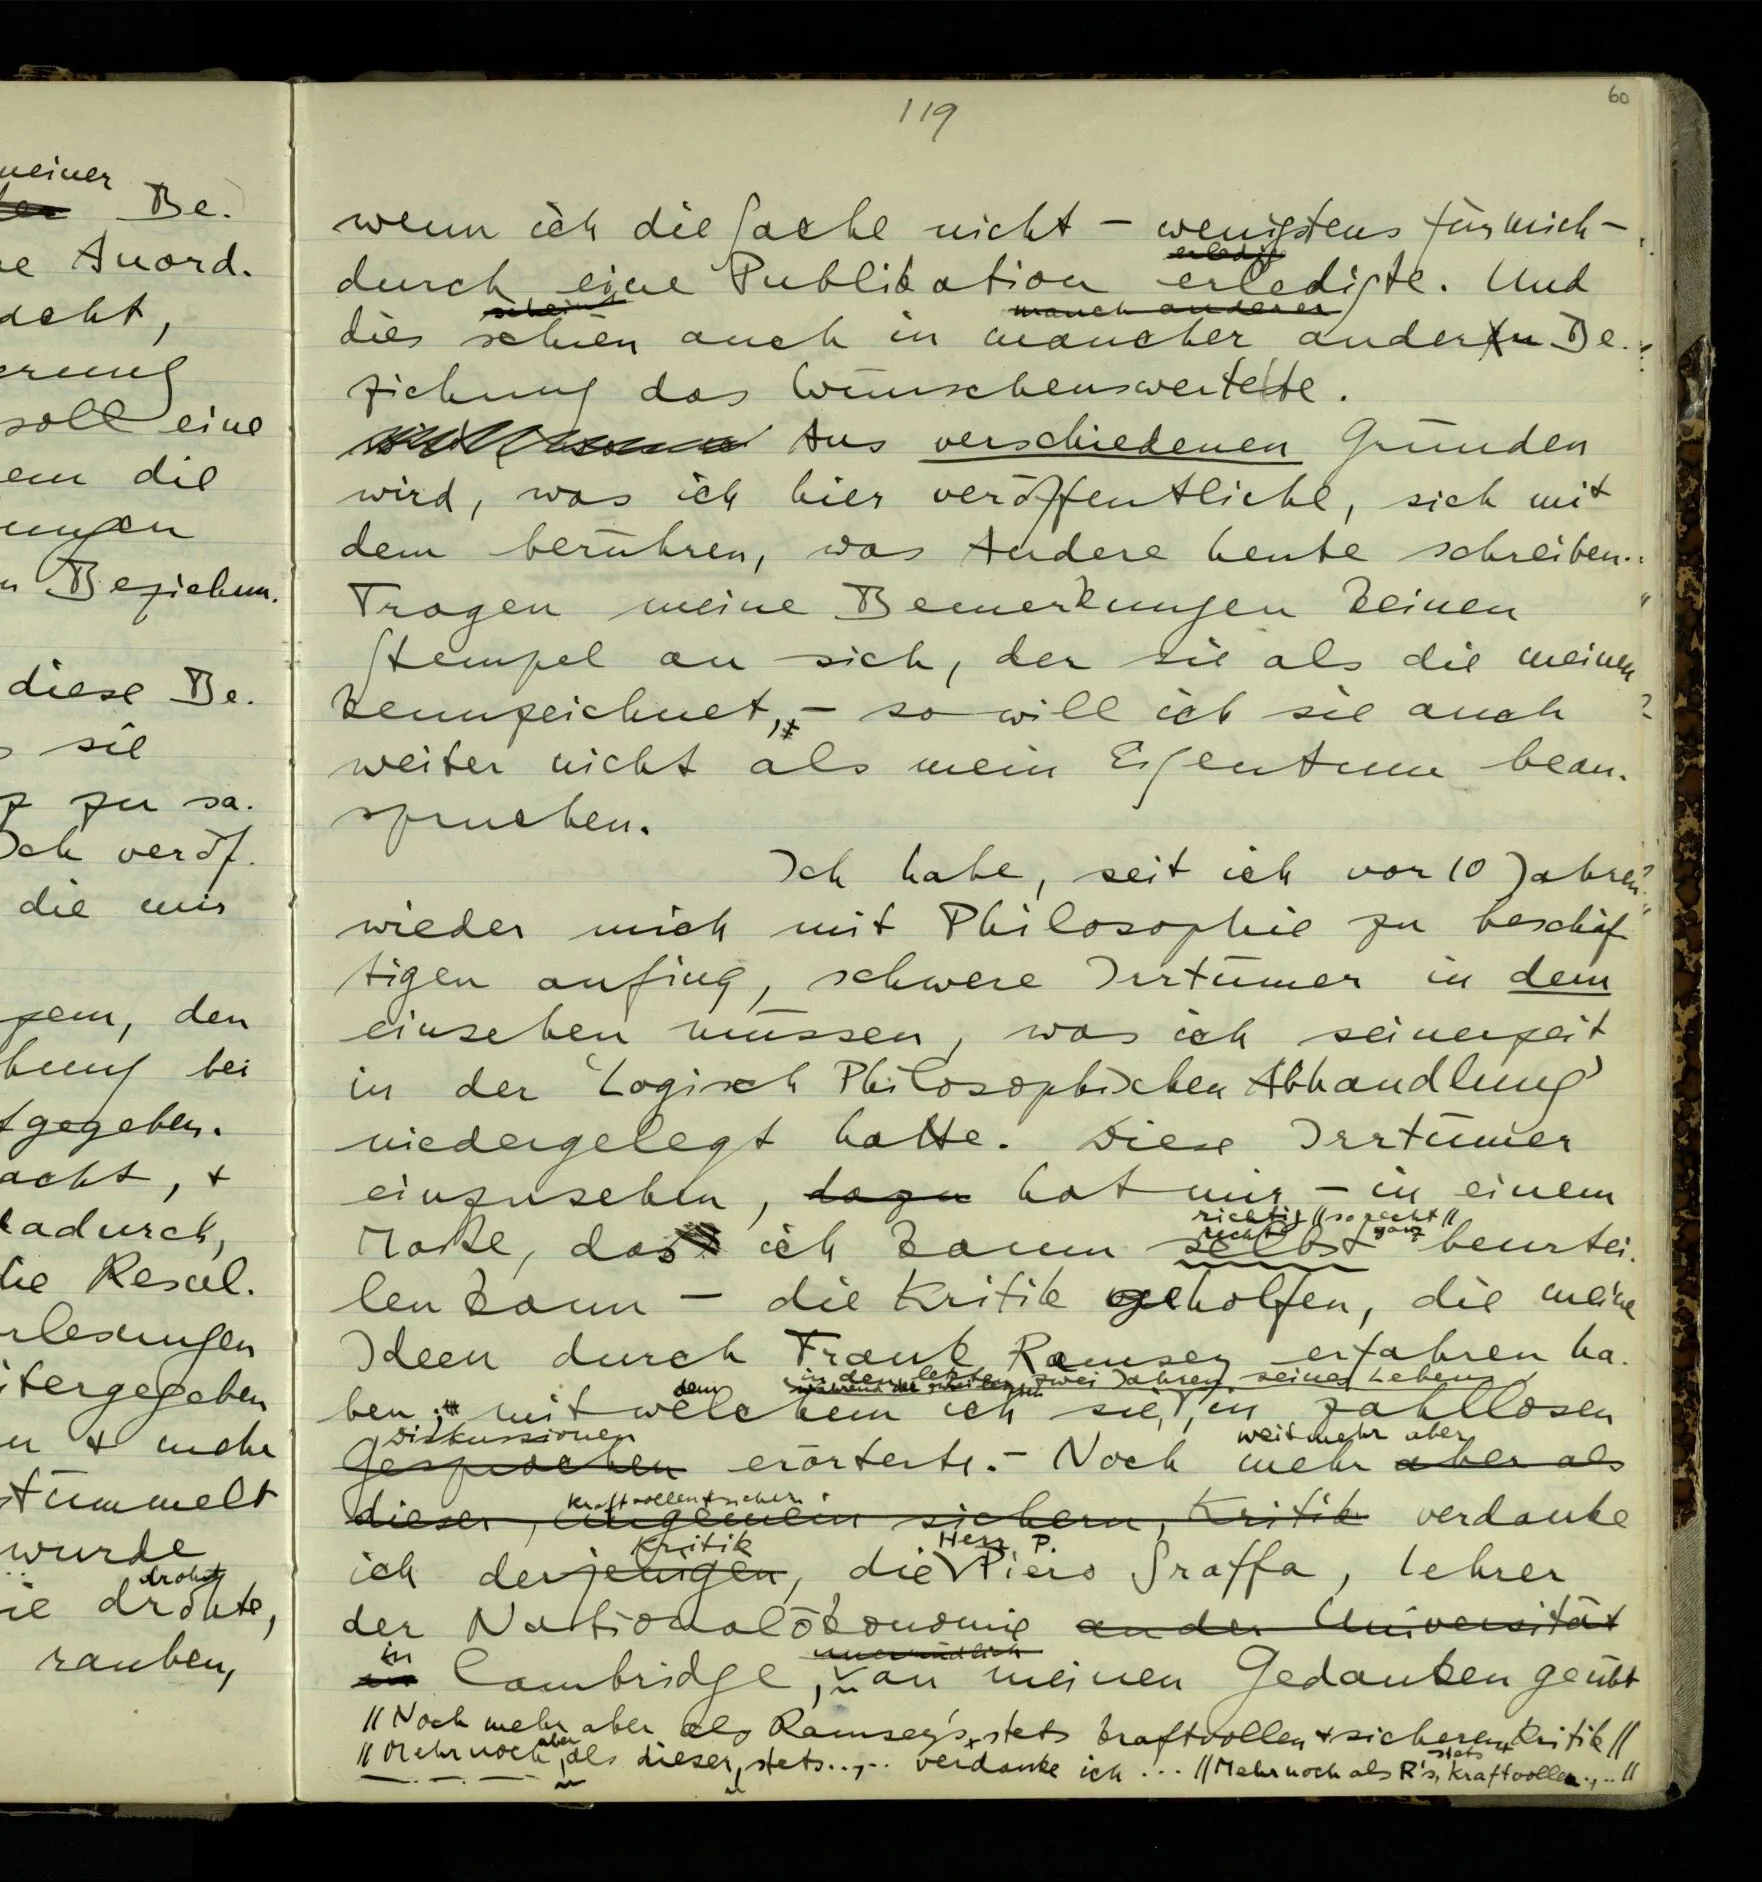 meiner
Be.
Anord.
acht,
soll eine
die
ungen
Beziehun.
diese Be.
sie
zu sa.
Ich veröf.
die mir
den
bei
gegeben.
acht, +
dadurch,
Resul.
orlesungen
itergegeben
+ mehr
stümmelt
wurde
droht
drohte,
rauben,
119
60
wenn ich die Sache nicht – wenigstens für mich –
durch eine Publikation erledigte. Und
scheint manch anderer
dies schien auch in mancher andern Be.
ziehung das Wünschenswerteste.
Aus verschiedenen Gründen
wird, was ich hier veröffentliche, sich mit
dem berühren, was Andere heute schreiben.
Tragen meine Bemerkungen keinen
Stempel an sich, der sie als die meinen
kennzeichnet, – so will ich sie auch
weiter nicht als mein Eigentum bean-
spruchen.
Ich habe, seit ich vor 10 Jahren
wieder mich mit Philosophie zu beschäf
tigen anfing, schwere Irrtümer in dem
einsehen müssen, was ich seinerzeit
in der 'Logisch Philosophischen Abhandlung'
niedergelegt hatte. Diese Irrtümer
einzusehen, dazu hat mir – in einem
richtig // so recht //
recht ganz
Maße, das ich kaum selbst beurtei.
len kann – die Kritik geholfen, die meine
Ideen durch Frank Ramsey erfahren ha.
in den letzten zwei Jahren seines Lebens
dem während der
ben; mit welchem ich sie, in zahllosen
Diskussionen weit mehr aber
Gesprächen erörterte. – Noch mehr aber als
kraftvollen + sichern
dieser, ungemein sichern, Kritik verdanke
Kritik Herr P.
ich derjenigen, die Piero Sraffa, Lehrer
der Nationalökonomie an der Universität
in unermüdlich
in Cambridge, an meinen Gedanken geübt
// Noch mehr aber als Ramsey's, stets kraftvollen + sicheren Kritik //
aber stets
// Mehr noch, als dieser, stets..,.. verdanke ich ... // Mehr noch als R's, kraftvollen.,.. //